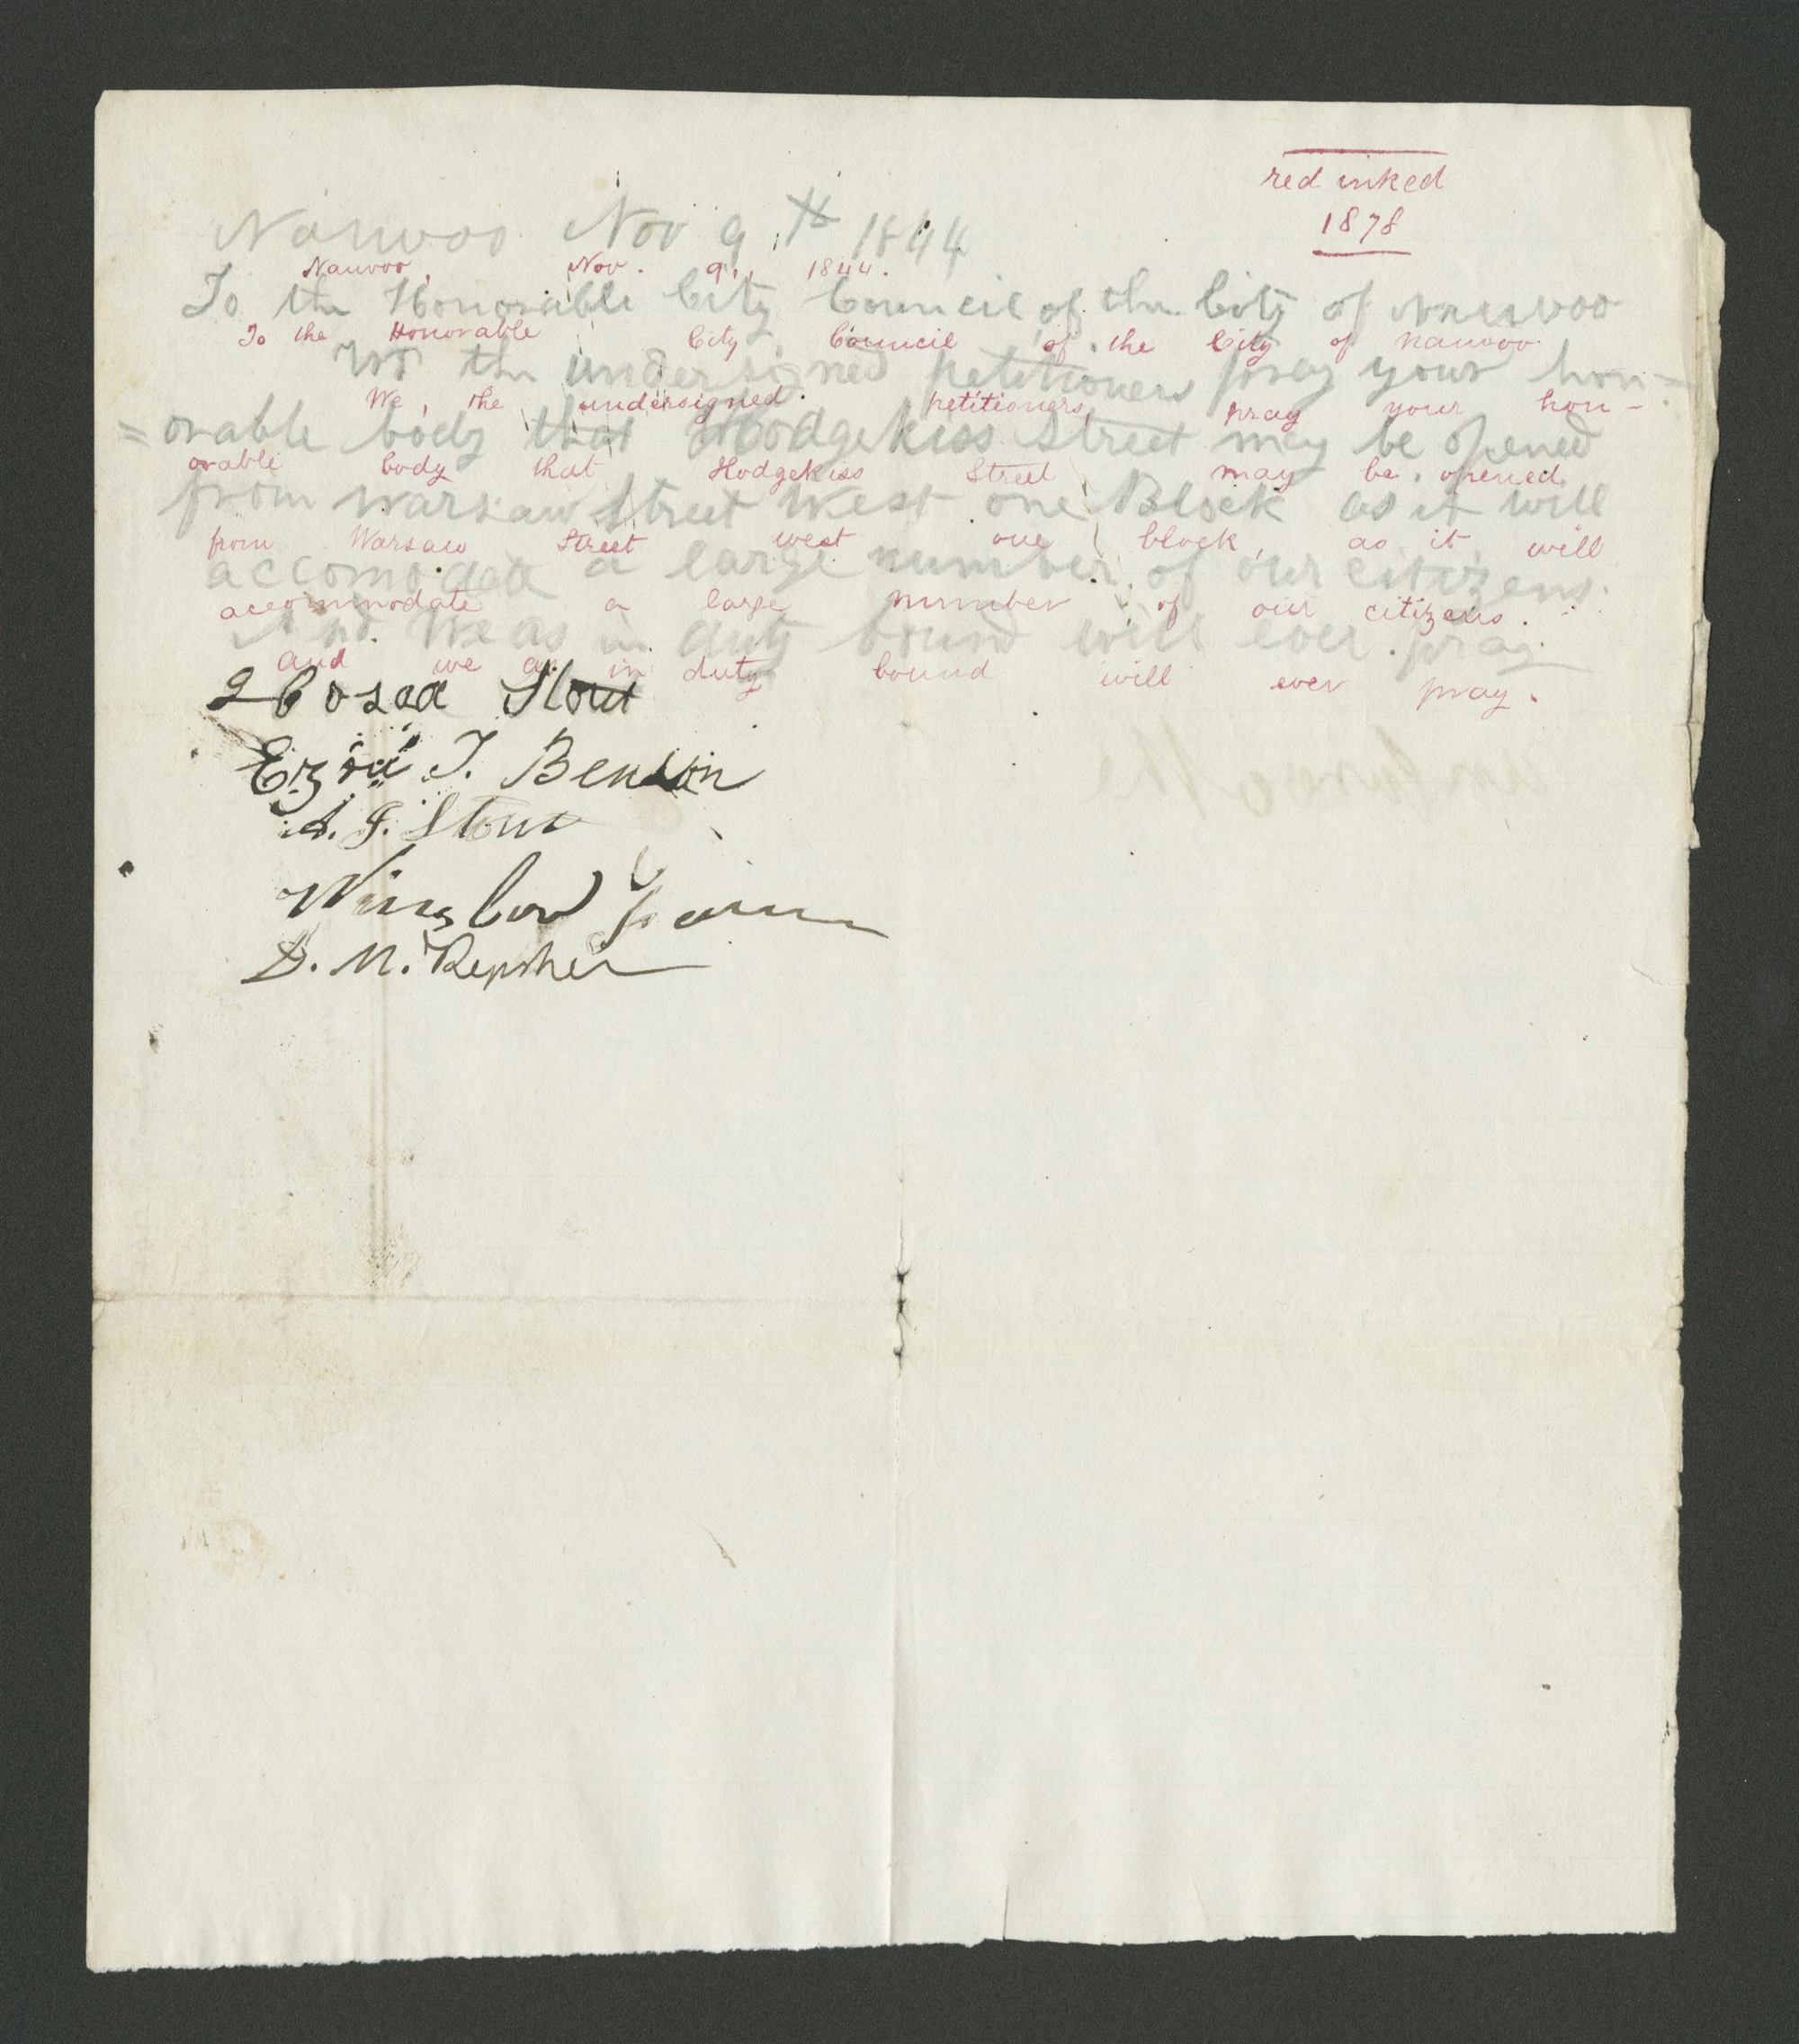 red inked
1878
Nauvoo Nov 9th 1844
Nauvoo, Nov. 9., 1844.
To the Honorable City Council of the City of Nauvoo
To the Honorable City Council of the City of Nauvoo.
We the undersigned petitioners pray your hon=
We, the undersigned petitioners, pray your hon-
=orable body that Hodgekiss Street may be opened
orable body that Hodgekiss Street may be opened
from Warsaw Street West one Block as it will
from Warsaw Street west one block, as it will
accomodate a large number of our citizens.
accommodate a large number of our citizens.
And We as in duty bound will ever pray
and we as in duty bound will ever pray.
Hosea Stout
Ezra T. Benson
A. J. Stout
Winslow Farr
D. M. Repsher